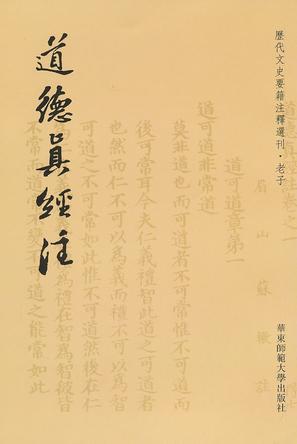 歷代文史要籍注釋選刊·老子
華東師範大學出版社
道德眞經注
道可道章第一
眉山蘇轍註
道可道非常道
莫非道也而可道者不可常惟不可道而
後可常耳今夫仁義禮智此道之可道者
也然而仁不可以為義而禮不可以為智
可道之不可常如此惟不可道然後在仁
為禮在智為智彼皆
不常而道常不變不可道之能常如此